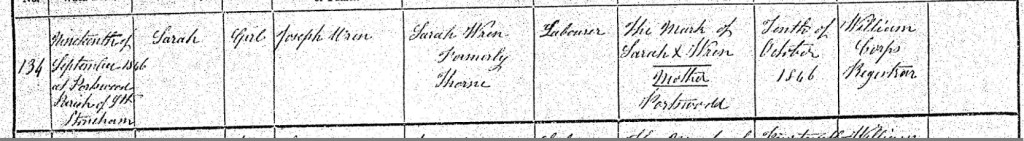 134
Nineteenth of
September 1846
at Portswood
Parish of Sth
Stoneham
Sarah
Girl
Joseph Wren
Sarah Wren
Formerly
Thorne
Labourer
The Mark of
Sarah X Wren
Mother
Portswood
Tenth of
October
1846
William
Corps
Registrar